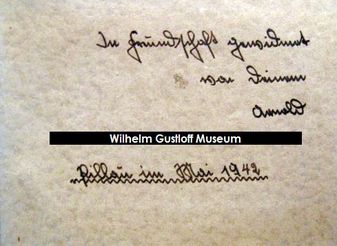 In Freundschaft gewidmet
von Deinem
Arnold
Wilhelm Gustloff Museum
Pillau im Mai 1942